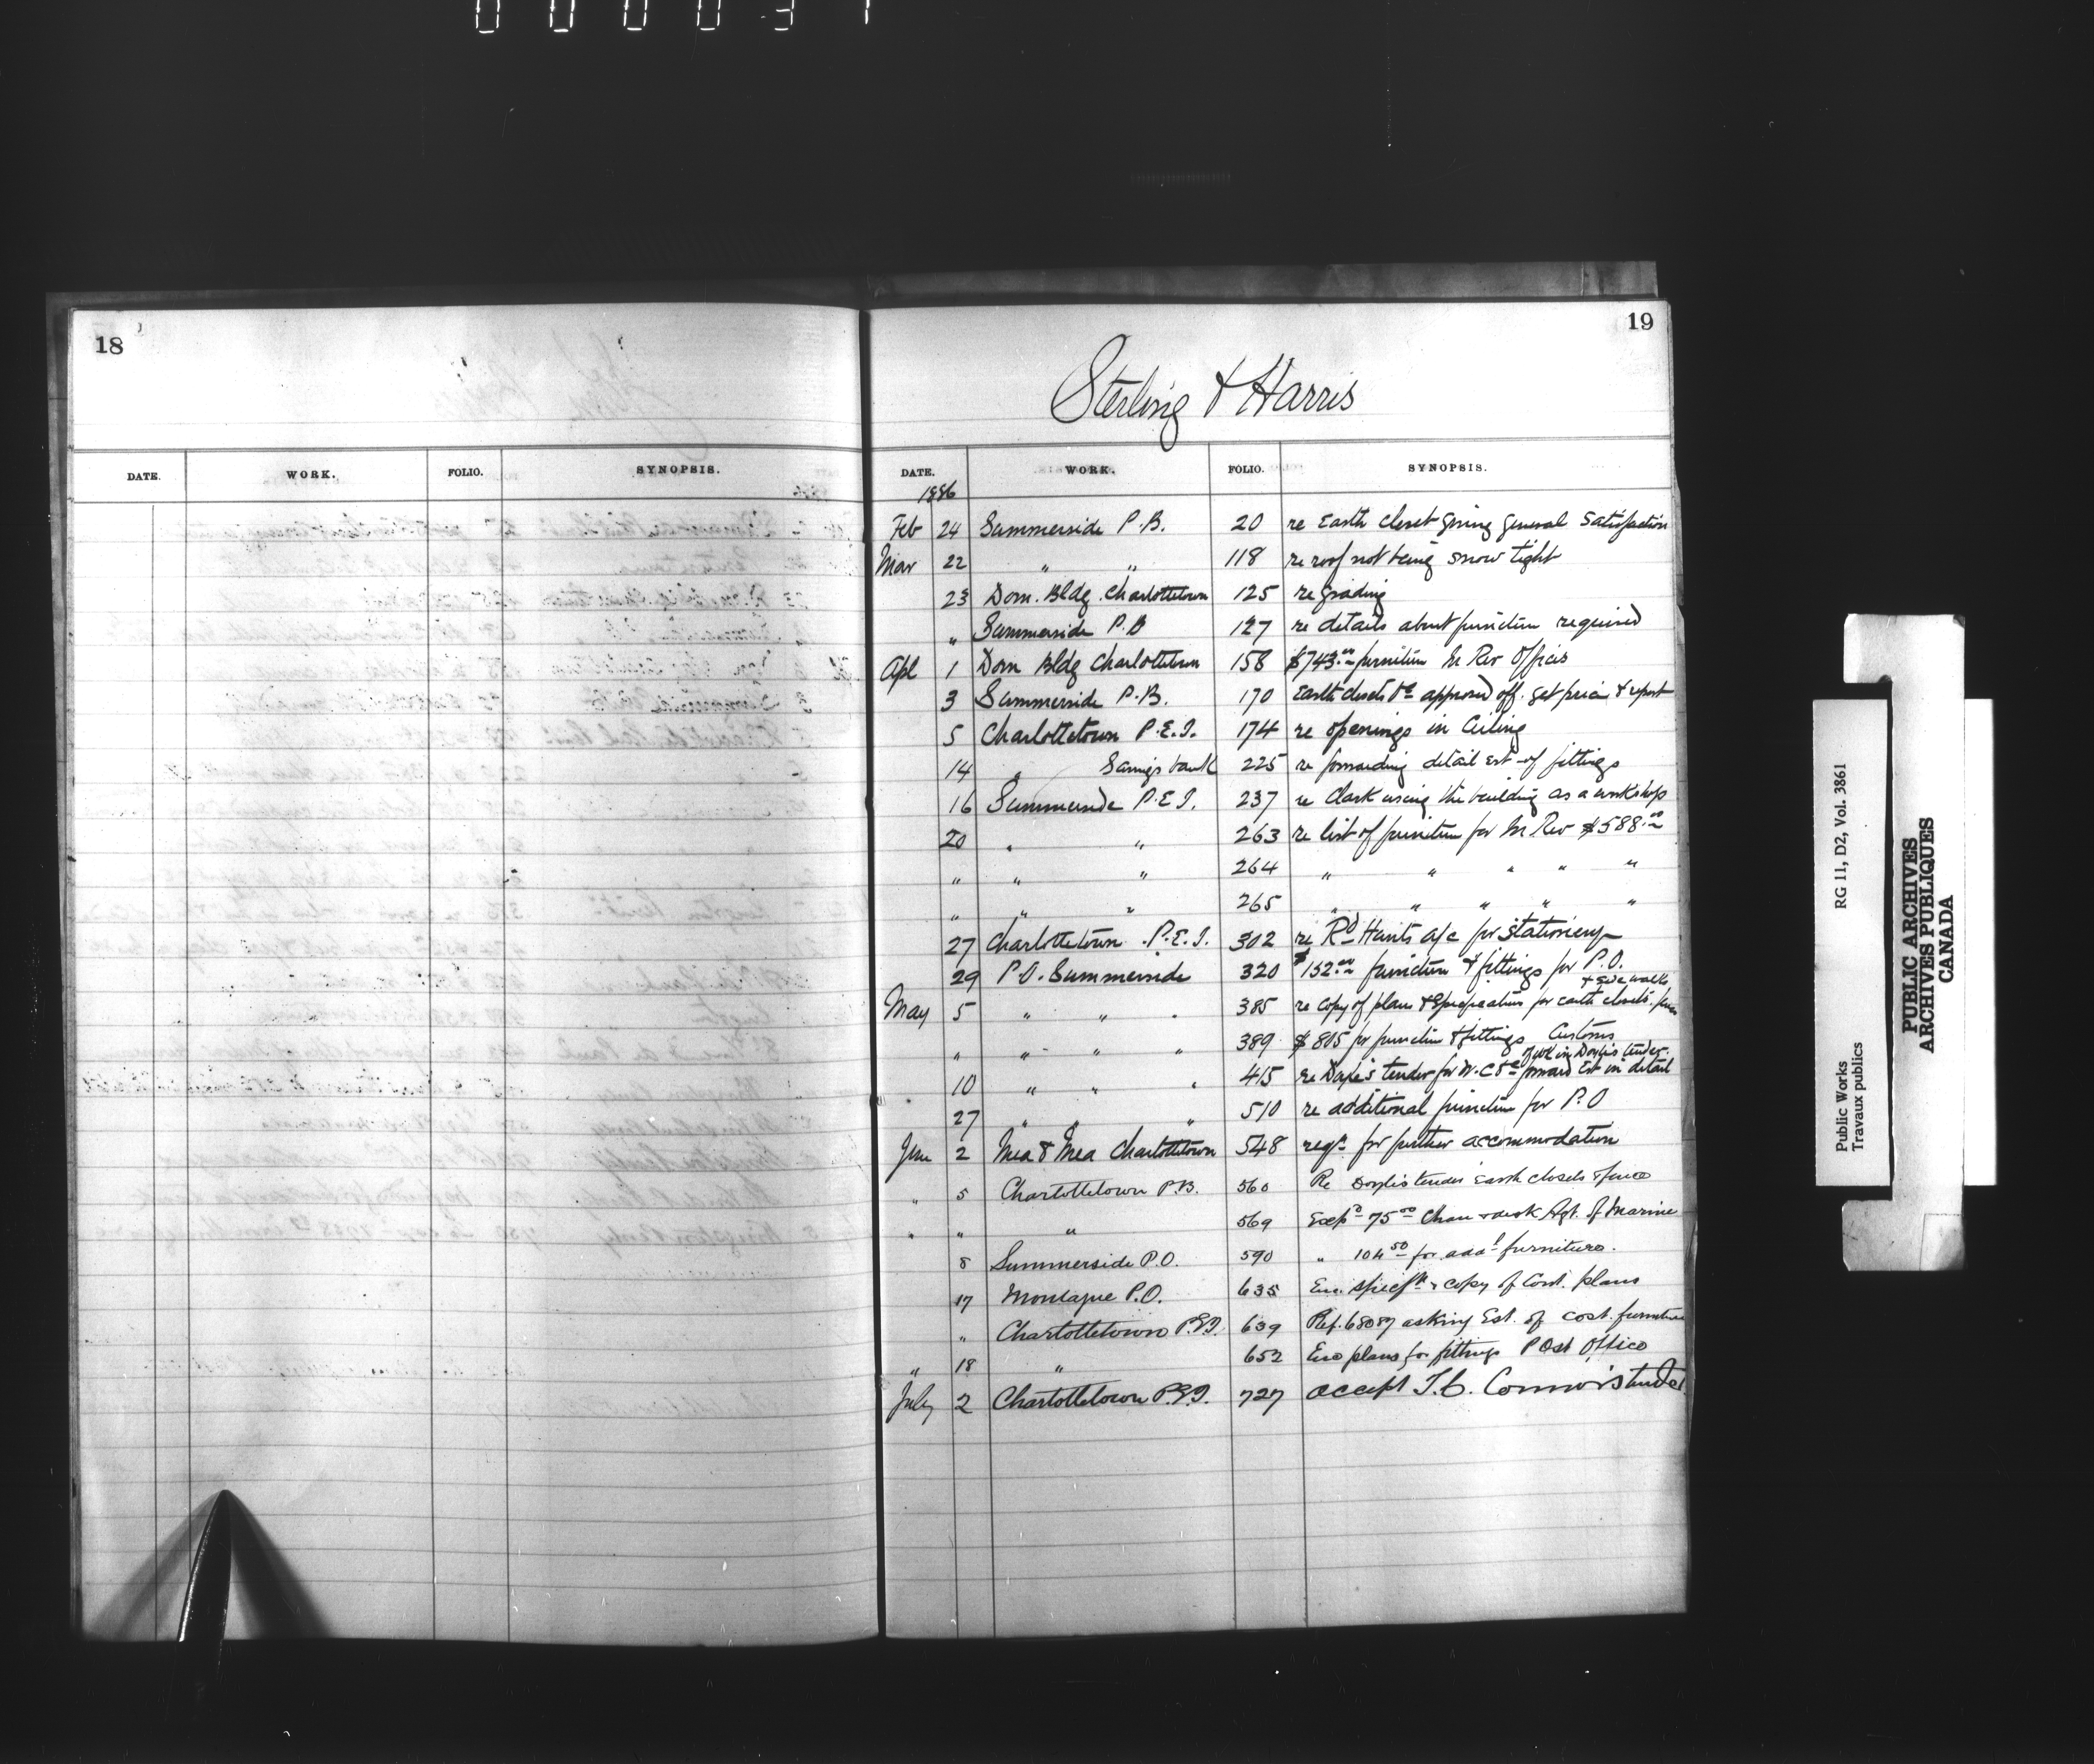 18
DATE. WORK. FOLIO. SYNOPSIS.
19
Sterling & Harris
DATE. WORK. FOLIO. SYNOPSIS.
1886
Feb 24 Summerside P.B. 20 re Earth closet giving general satisfaction
Mar 22 " " 118 re roof not being snow tight
23 Dom. Bldg. Charlottetown 125 re grading
" Summerside P.B 127 re details about furniture required
Apl 1 Dom Bldg Charlottetown 158 $743.00 furniture In Rev Offices
3 Summerside P.B. 170 Earth closets &c approved off. get price & report
5 Charlottetown P.E.I. 174 re openings in Ceiling
14 " Savings bank 225 re forwarding detail est of fittings
16 Summerside P.E.I. 237 re Clark using the building as a workshop
20 " " 263 re list of furniture for In Rev $588.00
" " " 264 " " " " "
" " " 265 " " " " "
27 Charlottetown P.E.I. 302 re Rd Hunts a/c for stationery
29 P.O. Summerside 320 $152.00 furniture & fittings for P.O.
& sidewalks
May 5 " " " 385 re copy of plans & specification for earth closets
" " " " 389 $805 for furniture & fittings Customs
of WC in Doyle's tender
10 " " " 415 re Doyle's tender for W.C &c forward Est in detail
27 " " " 510 re additional furniture for P.O
June 2 Mea & Mea Charlottetown 548 reqn for further accommodation
" 5 Charlottetown P.B. 560 Re Doyles tender Earth closets & fence
" " " 569 Expd 75.00 Chair & desk Agt. of Marine
8 Summerside P.O. 590 " 104.50 for addl furniture.
17 Montague P.O. 635 Enc. specfn & copy of Cont. plans
" Charlottetown P.E.I. 639 Ref. 68087 asking Est. of cost furniture
" 18 " 652 Enc plans for fittings Post Office
July 2 Charlottetown P.E.I. 727 accept T.C. Connor's tender
Public Works RG 11, D2, Vol. 3861
Travaux publics
PUBLIC ARCHIVES
ARCHIVES PUBLIQUES
CANADA